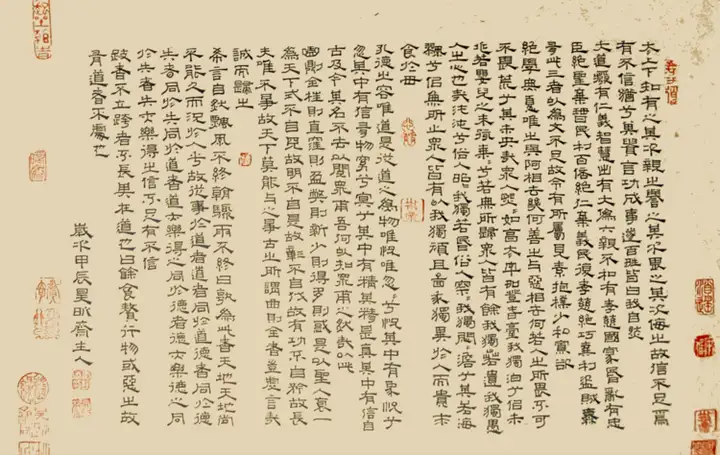 太上下知有之其次親之譽之其次畏之其次侮之故信不足焉
有不信猶兮其貴言功成事遂百姓皆曰我自然
大道廢有仁義智慧出有大偽六親不和有孝慈國家昏亂有忠
臣絕聖棄智民利百倍絕仁棄義民復孝慈絕巧棄利盜賊無
有此三者以為文不足故令有所屬見素抱樸少私寡欲
絕學無憂唯之與阿相去幾何善之與惡相去何若人之所畏不可
不畏荒兮其未央哉衆人熙〻如享太牢如登春臺我獨泊兮其未
兆若嬰兒之未孩乘兮若無所歸衆人皆有餘我獨若遺我獨愚
人之心也哉沌沌兮俗人昭〻我獨若昏俗人察〻我獨悶〻澹兮其若海
飂兮似無所止衆人皆有以我獨頑且鄙我獨異於人而貴求
食於母
孔德之容唯道是從道之為物唯怳唯忽〻兮怳其中有象怳兮
忽其中有物窈兮冥兮其中有精其精甚真其中有信自
古及今其名不去以閱衆甫吾何以知衆甫之然哉以此
曲則全枉則直窪則盈弊則新少則得多則惑是以聖人裹一
為天下式不自見故明不自是故彰不自伐故有功不自矜故長
夫唯不爭故天下莫能與之爭古之所謂曲則全者豈虛言哉
誠而歸之
希言自然飄風不終朝驟雨不終日孰為此者天地天地尚
不能久而況於人乎故從事於道者道者同於道德者同於德
失者同於失同於道者道亦樂得之同於德者德亦樂德之同
於失者失亦樂得之信不足有不信
跂者不立跨者不長其在道也曰餘食贅行物或惡之故
有道者不處也
歲次甲辰齋主人